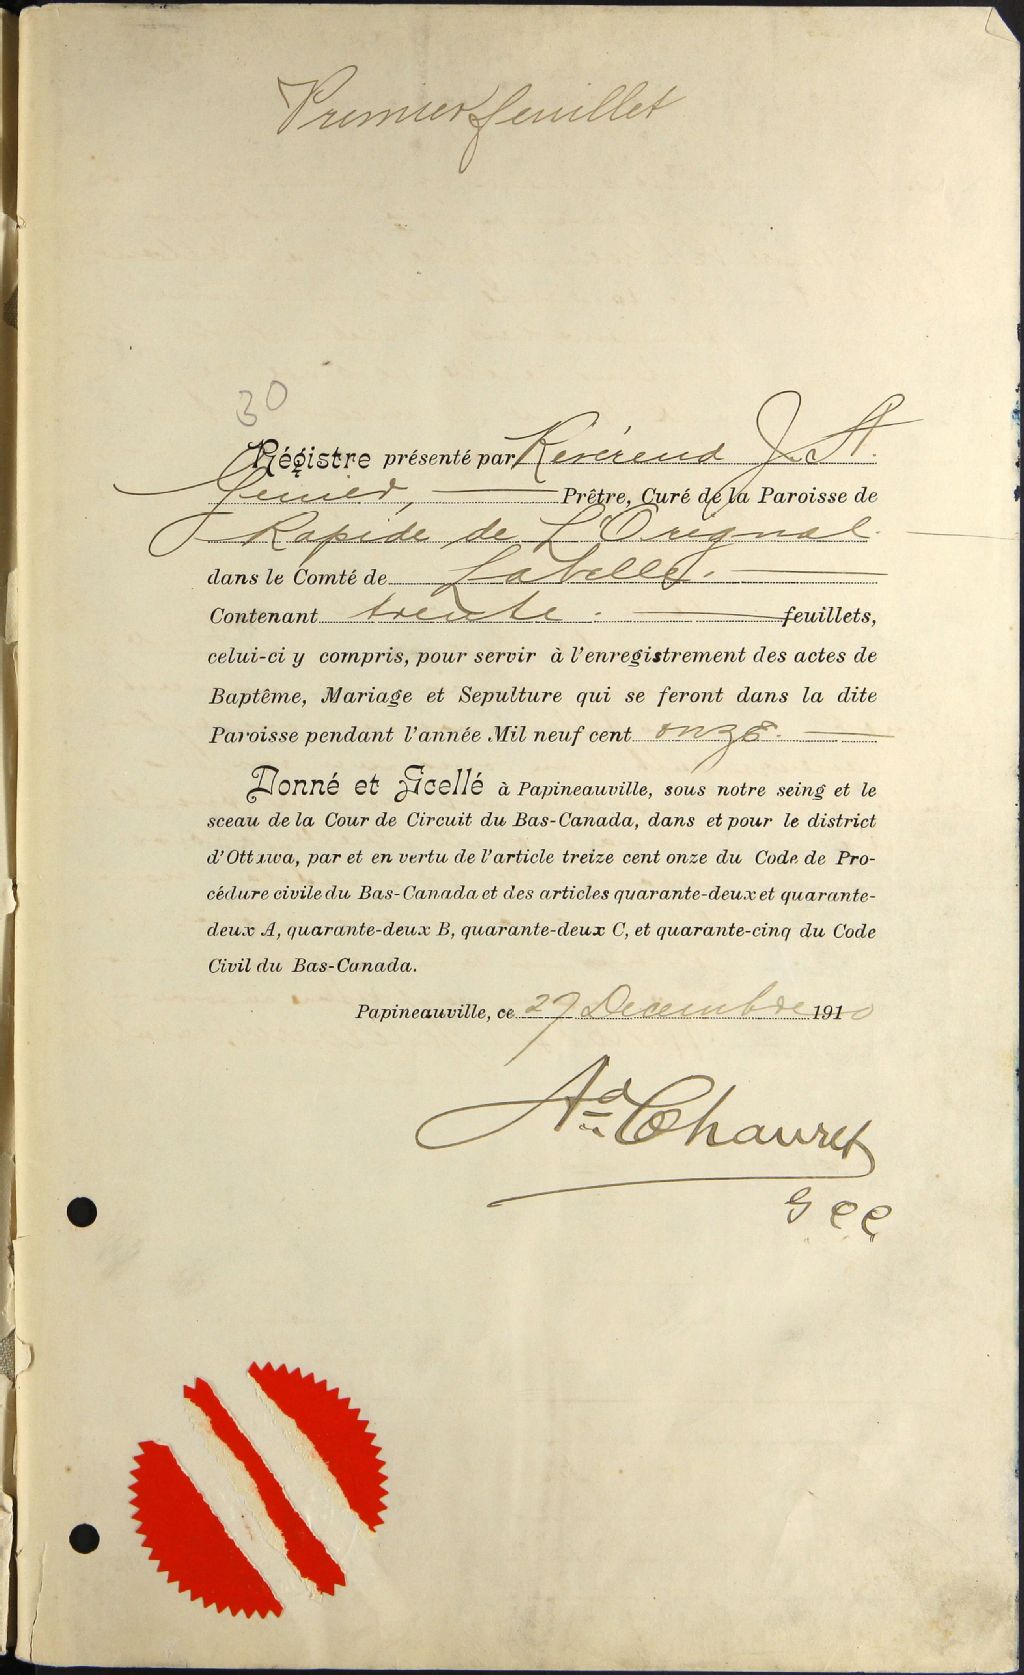 Premier feuillet
30
Régistre présenté par Révérend J. A.
Genier, Prêtre, Curé de la Paroisse de
Rapide de L'Orignal.
dans le Comté de Labelle.
Contenant trente. feuillets,
celui-ci y compris, pour servir à l'enregistrement des actes de
Baptême, Mariage et Sepulture qui se feront dans la dite
Paroisse pendant l'année Mil neuf cent onze.
Donné et Scellé à Papineauville, sous notre seing et le
sceau de la Cour de Circuit du Bas-Canada, dans et pour le district
d'Ottawa, par et en vertu de l'article treize cent onze du Code de Pro-
cédure civile du Bas-Canada et des articles quarante-deux et quarante-
deux A, quarante-deux B, quarante-deux C, et quarante-cinq du Code
Civil du Bas-Canada.
Papineauville, ce 27 Decembre 1910
Ad Chauret
G C C